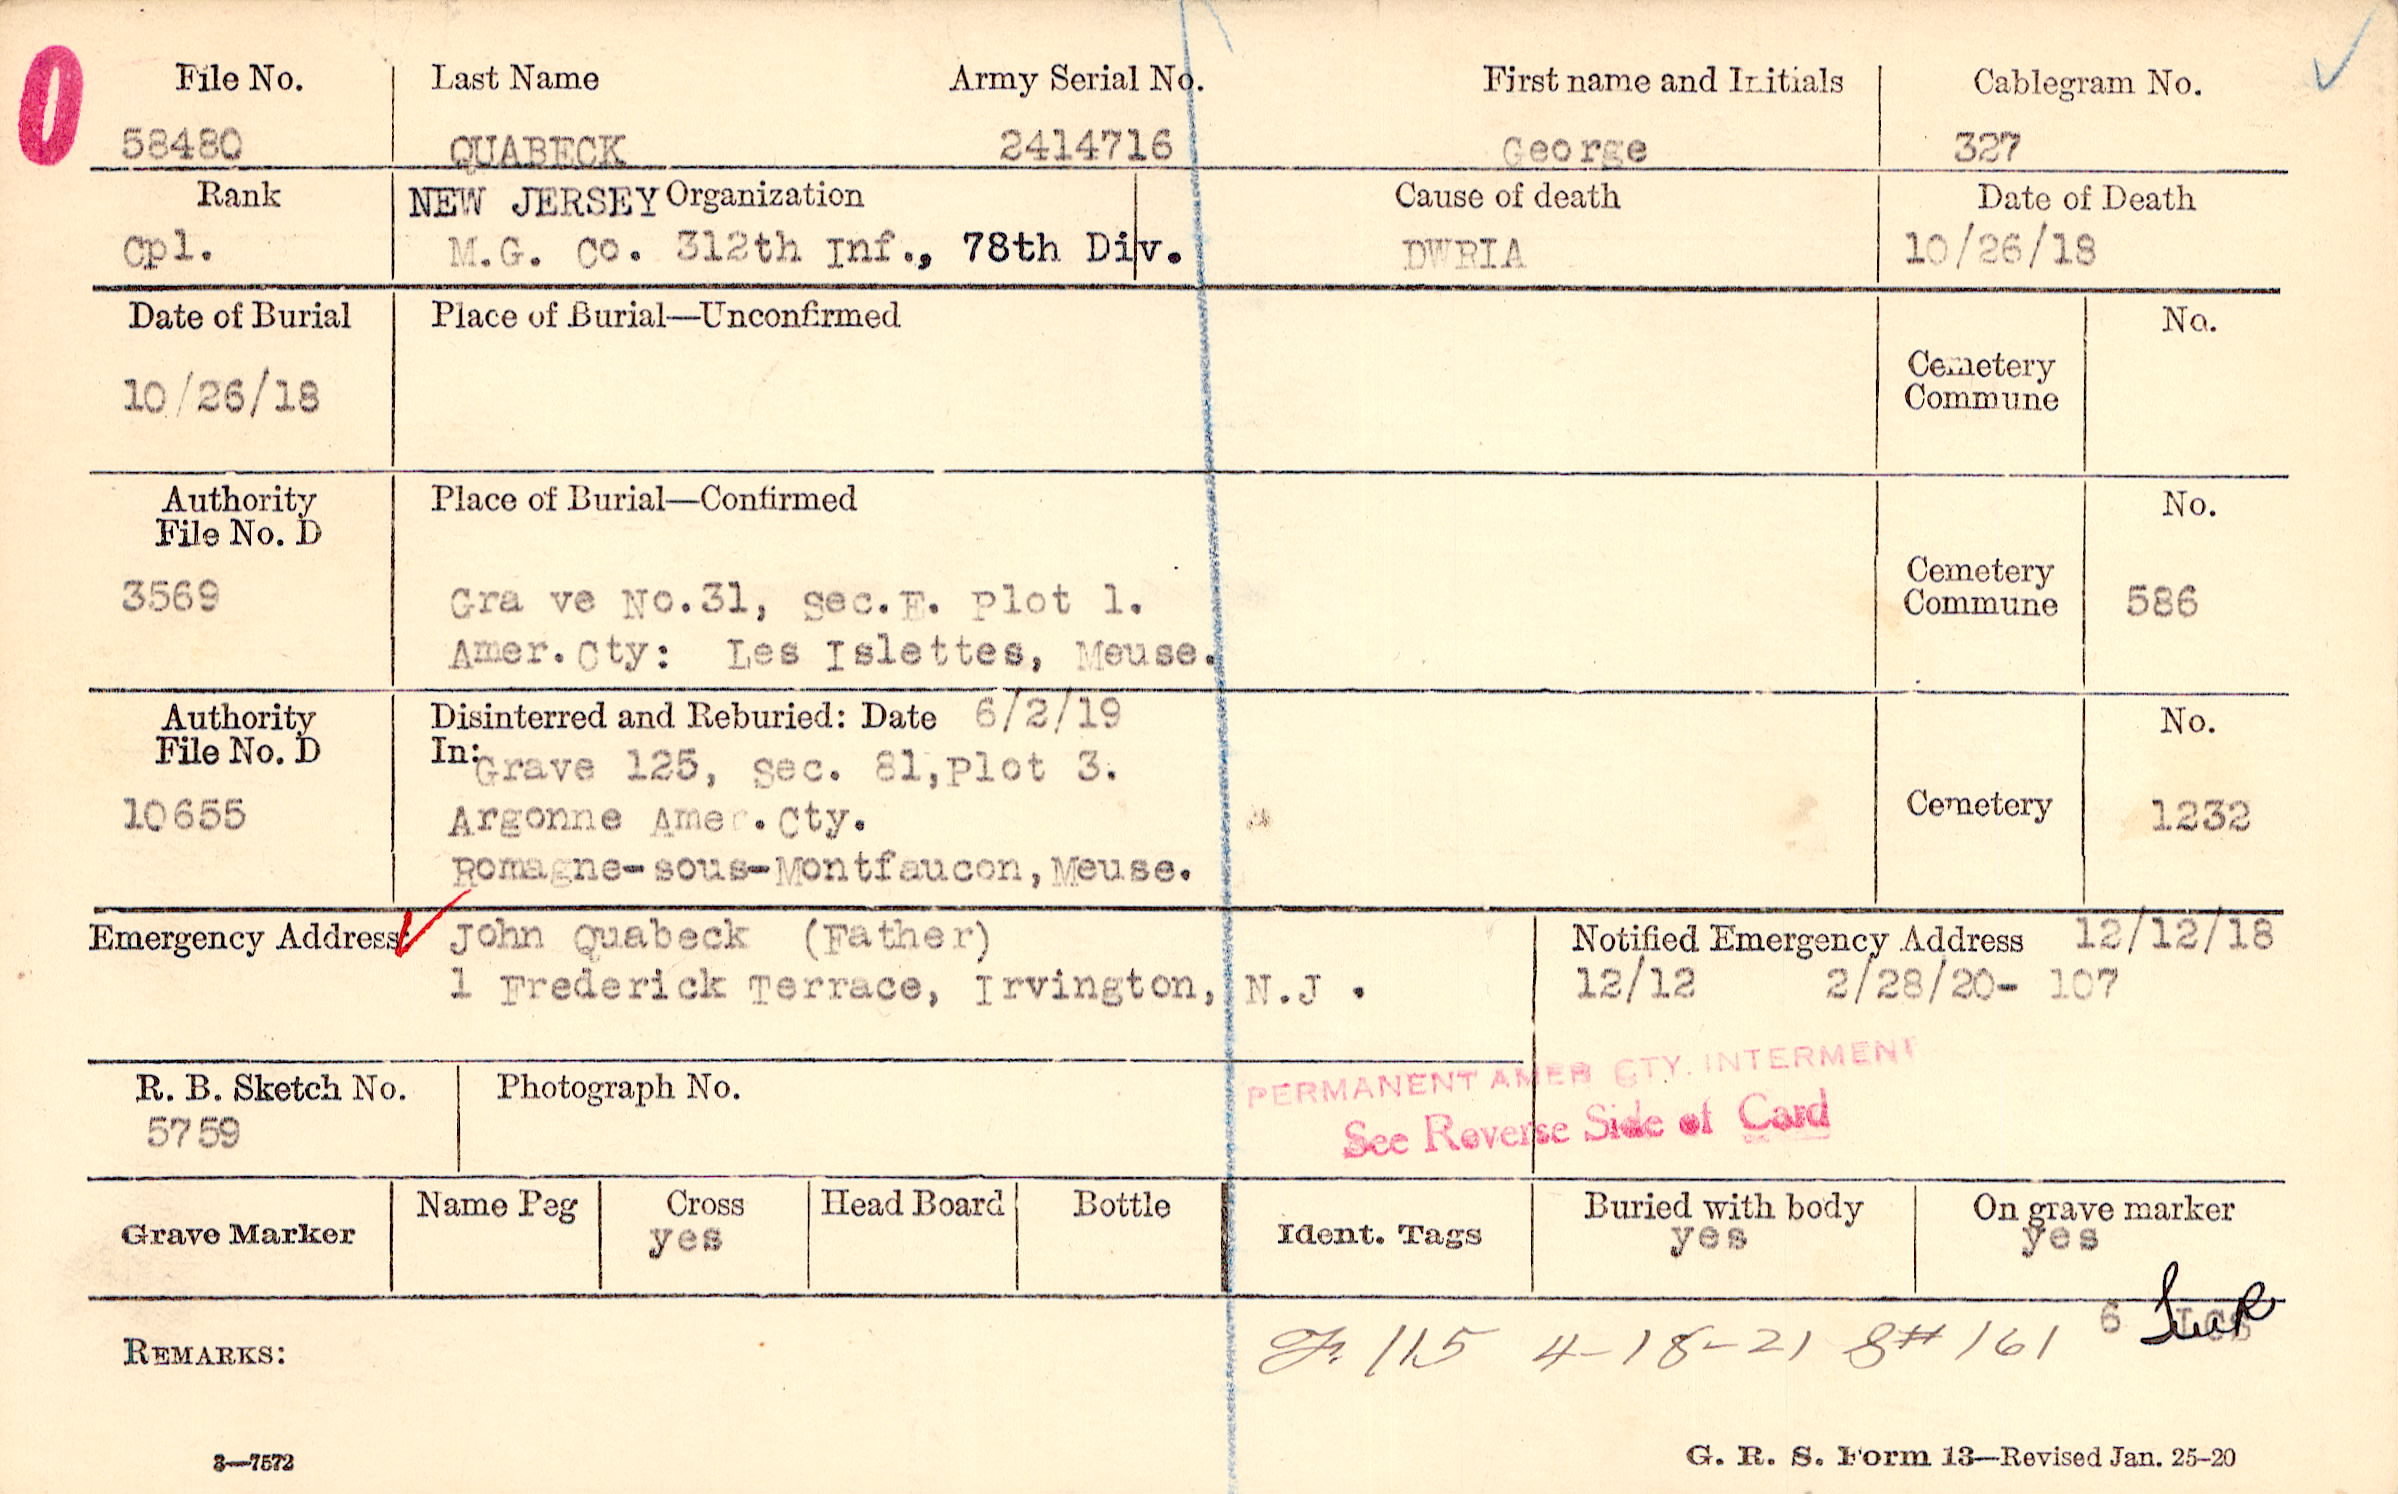 File No. Last Name Army Serial No. First name and Initials Cablegram No.
58480 QUABECK 2414716 George 327
Rank NEW JERSEY Organization Cause of death Date of Death
Cpl. M.G. Co. 312th Inf., 78th Div. DWRIA 10/26/18
Date of Burial Place of Burial—Unconfirmed No.
10/26/18 Cemetery
Commune
Authority Place of Burial—Confirmed No.
File No. D
3569 Gra ve No.31, Sec.E. Plot 1. Cemetery
Commune 586
Amer.Cty: Les Islettes, Meuse.
Authority Disinterred and Reburied: Date 6/2/19 No.
File No. D In: Grave 125, Sec. 81,Plot 3.
10655 Argonne Amer.Cty. Cemetery 1232
Romagne-sous-Montfaucon,Meuse.
Emergency Address: John Quabeck (Father) Notified Emergency Address 12/12/18
1 Frederick Terrace, Irvington, N.J. 12/12 2/28/20- 107
R. B. Sketch No. Photograph No. PERMANENT AMER CTY. INTERMENT
5759 See Reverse Side of Card
Grave Marker Name Peg Cross Head Board Bottle Ident. Tags Buried with body On grave marker
yes yes yes
6
REMARKS: 115 4-18-21 S# 161
3—7572 G. R. S. Form 13—Revised Jan. 25-20